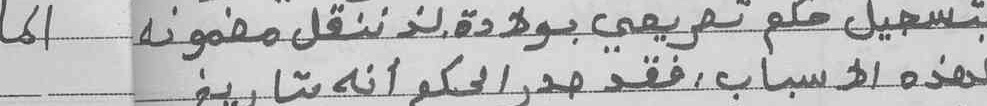 بتسجيل حكم تصريحي بولادة، لذ ننقل مضمونه الما
لهذه الاسباب، فقد صدر الحكم أنه بتاريخ